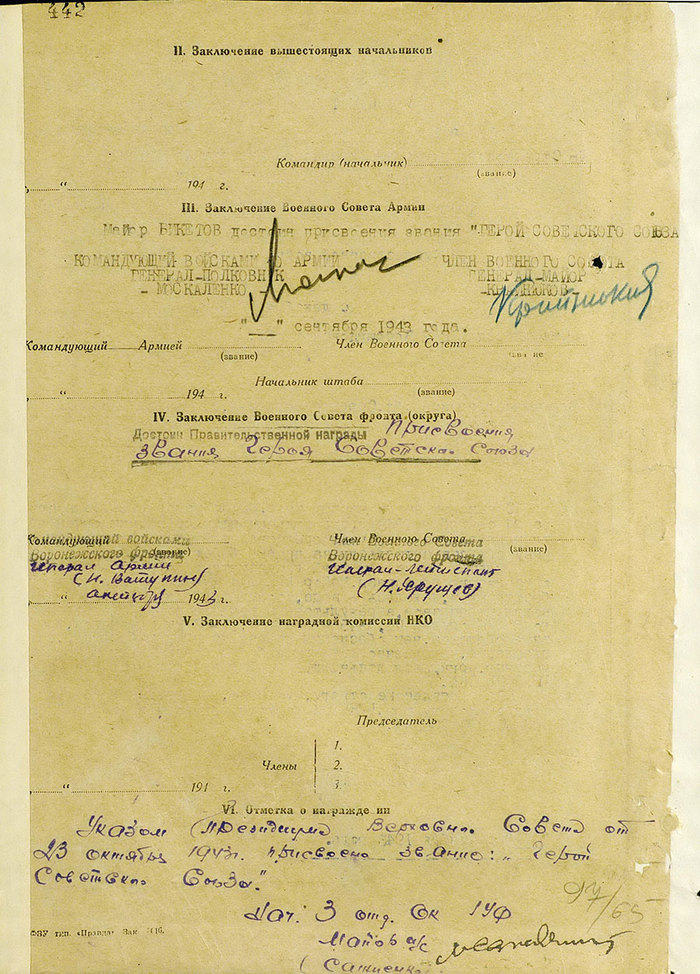 442
II. Заключение вышестоящих начальников
Командир (начальник)
(звание)
„ “ 194 г.
III. Заключение Военного Совета Армии
Майор БИКЕТОВ достоин присвоения звания "ГЕРОЙ СОВЕТСКОГО СОЮЗА
КОМАНДУЮЩИЙ ВОЙСКАМИ АРМИИ ЧЛЕН ВОЕННОГО СОВЕТА
ГЕНЕРАЛ-ПОЛКОВНИК ГЕНЕРАЛ-МАЙОР
- МОСКАЛЕНКО -КРАЙНЮКОВ
"__" сентября 1943 года.
Командующий Армией Член Военного Совета
(звание) (звание)
Начальник штаба
„ “ 194 г. (звание)
IV. Заключение Военного Совета фронта (округа)
Достоин Правительственной награды Присвоения
звания Героя Советско. Союза
Командующий войсками Член Военного Совета
Воронежского фронта (звание) Воронежского фронта (звание)
Генерал Армии Генерал-лейтенант
(Н. Ватутин) (Н. Хрущев)
„ “ октября 1943 г.
V. Заключение наградной комиссии НКО
Председатель
1.
Члены 2.
3.
„ “ 194 г.
VI. Отметка о награждении
Указом Президиума Верховно. Совета от
23 октября 1943г. присвоено звание: „Герой
Советско. Союза".
97/65
Нач. 3 отд. ОК 1УФ
Майор а/с
ФЗУ тип. «Правда» Зак.